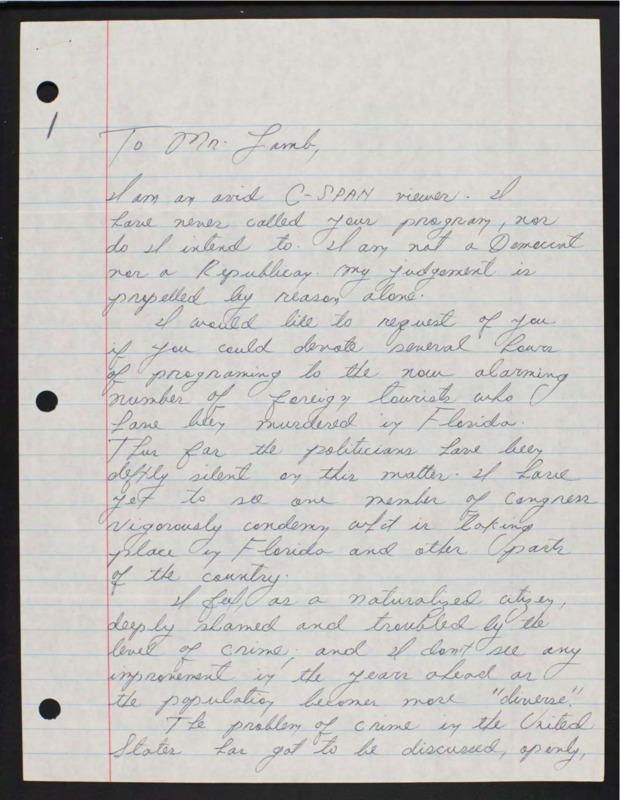 1
To Mr. Lamb,
I am an avid C-SPAN viewer. I
have never called your program, nor
do I intend to. I am not a Democrat
nor a Republican. My judgement is
propelled by reason alone.
I would like to request of you
if you could devote several hours
of programing to the now alarming
number of foreign tourists who
have been murdered in Florida.
Thus far the politicians have been
deftly silent on this matter. I have
yet to see one member of congress
vigorously condemn what is taking
place in Florida and other parts
of the country.
I feel, as a naturalized citizen,
deeply shamed and troubled by the
level of crime; and I don't see any
improvement in the years ahead as
the population becomes more "diverse".
The problem of crime in the United
States has got to be discussed, openly,